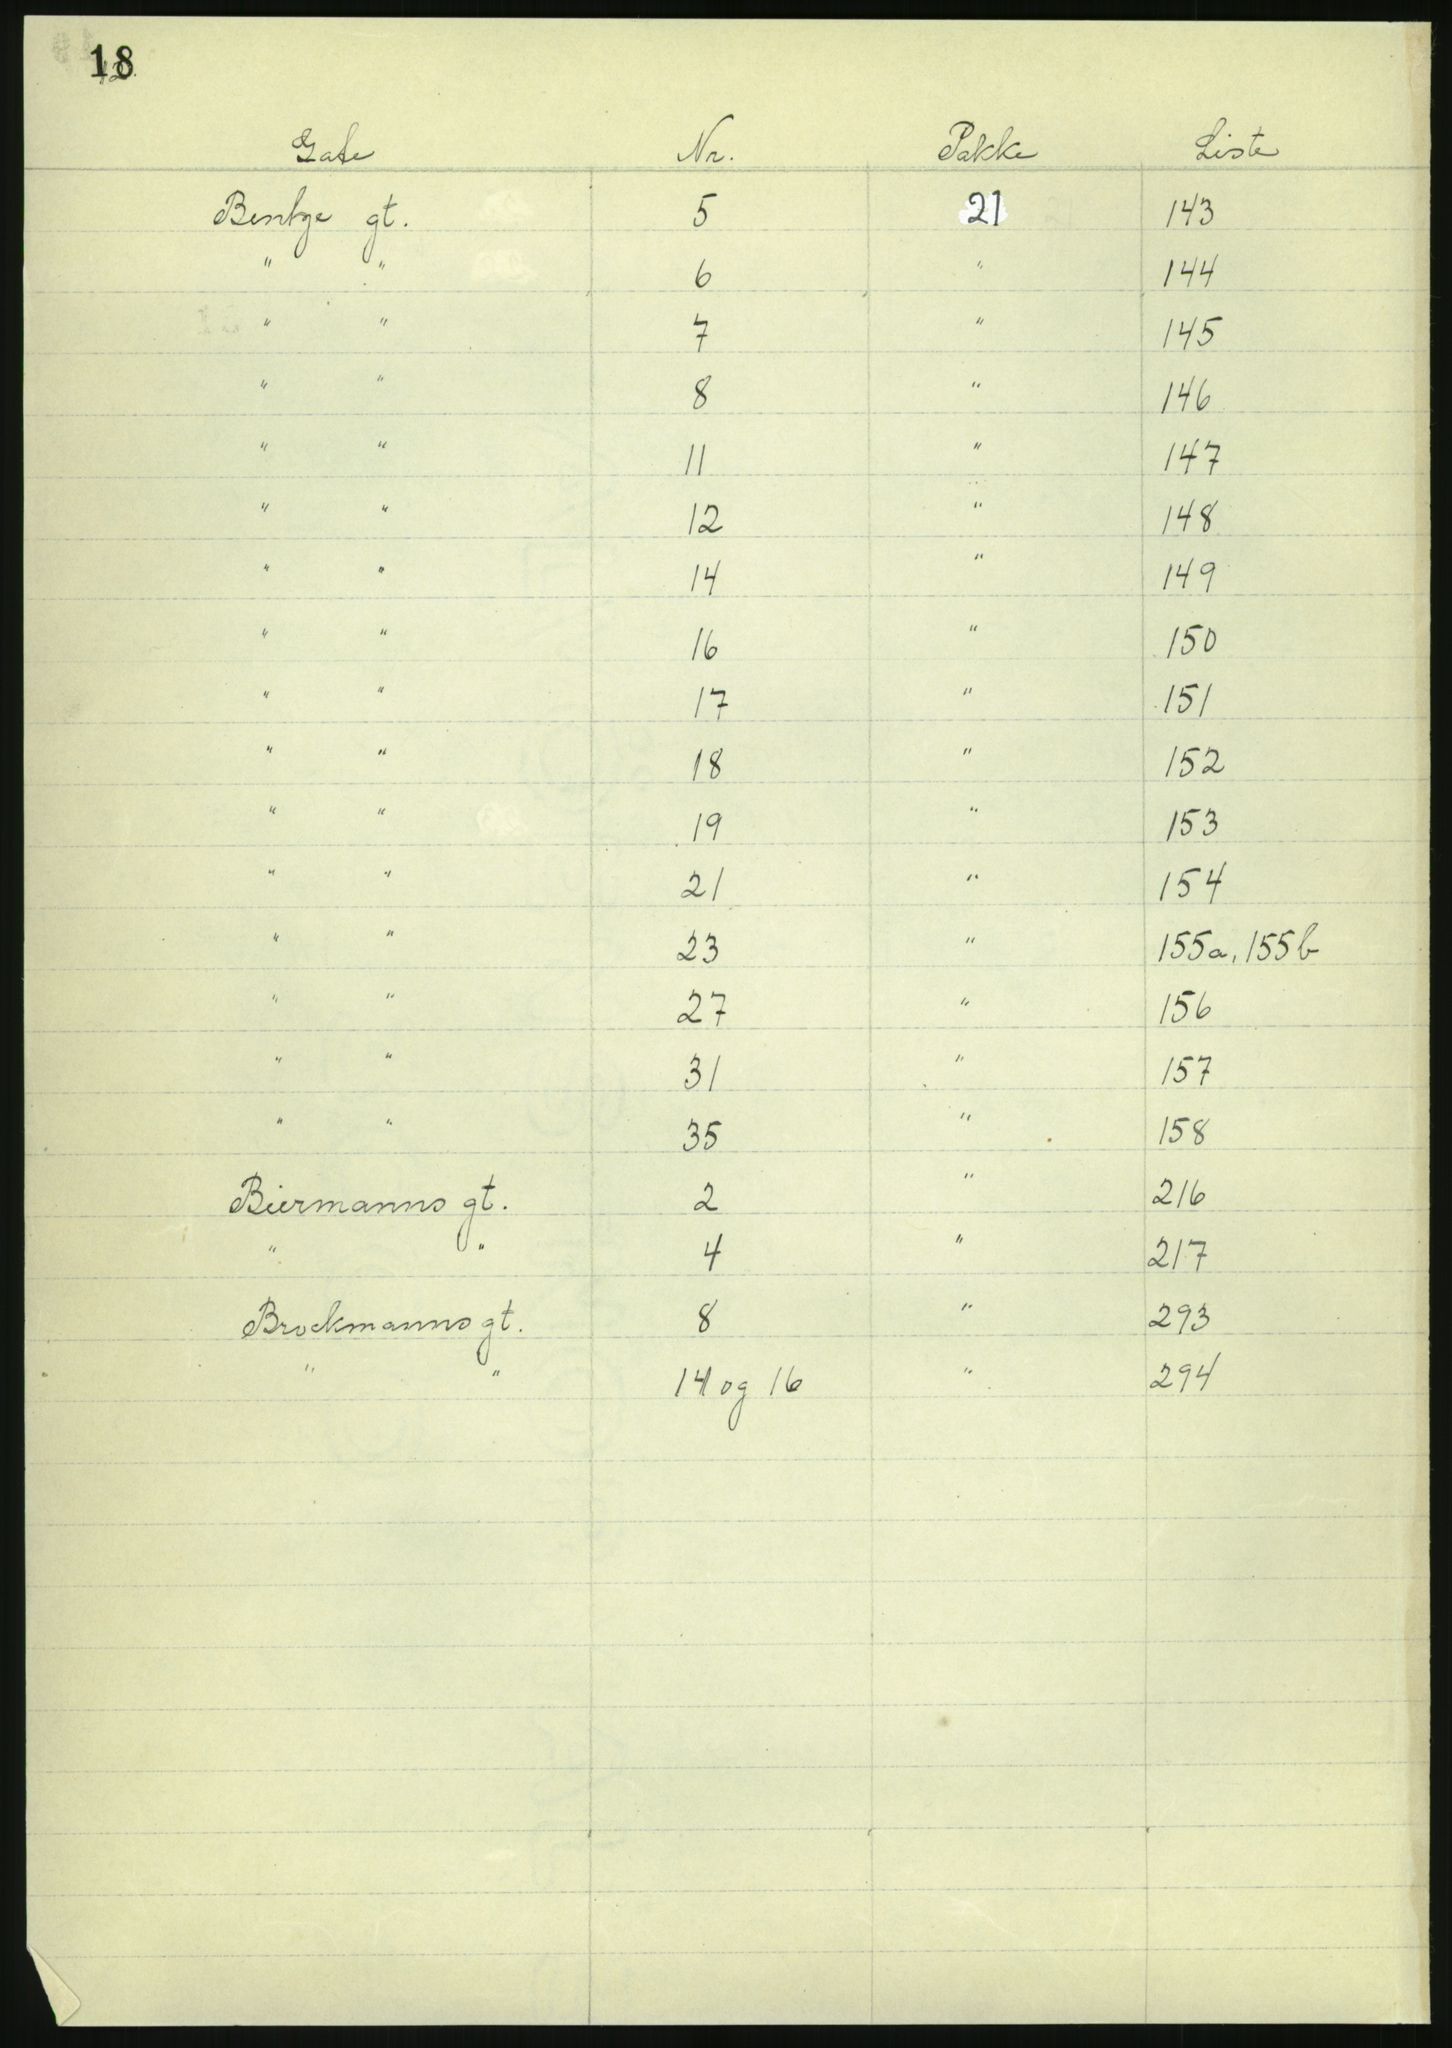 18
12
Gate Nr. Pakke Liste
Bentze gt. 5 21 143
" " 6 " 144
" " 7 " 145
" " 8 " 146
" " 11 " 147
" " 12 " 148
" " 14 " 149
" " 16 " 150
" " 17 " 151
" " 18 " 152
" " 19 " 153
" " 21 " 154
" " 23 " 155a, 155b
" " 27 " 156
" " 31 " 157
" " 35 " 158
Biermanns gt. 2 " 216
" " 4 " 217
Brockmanns gt. 8 " 293
" " 14 og 16 " 294